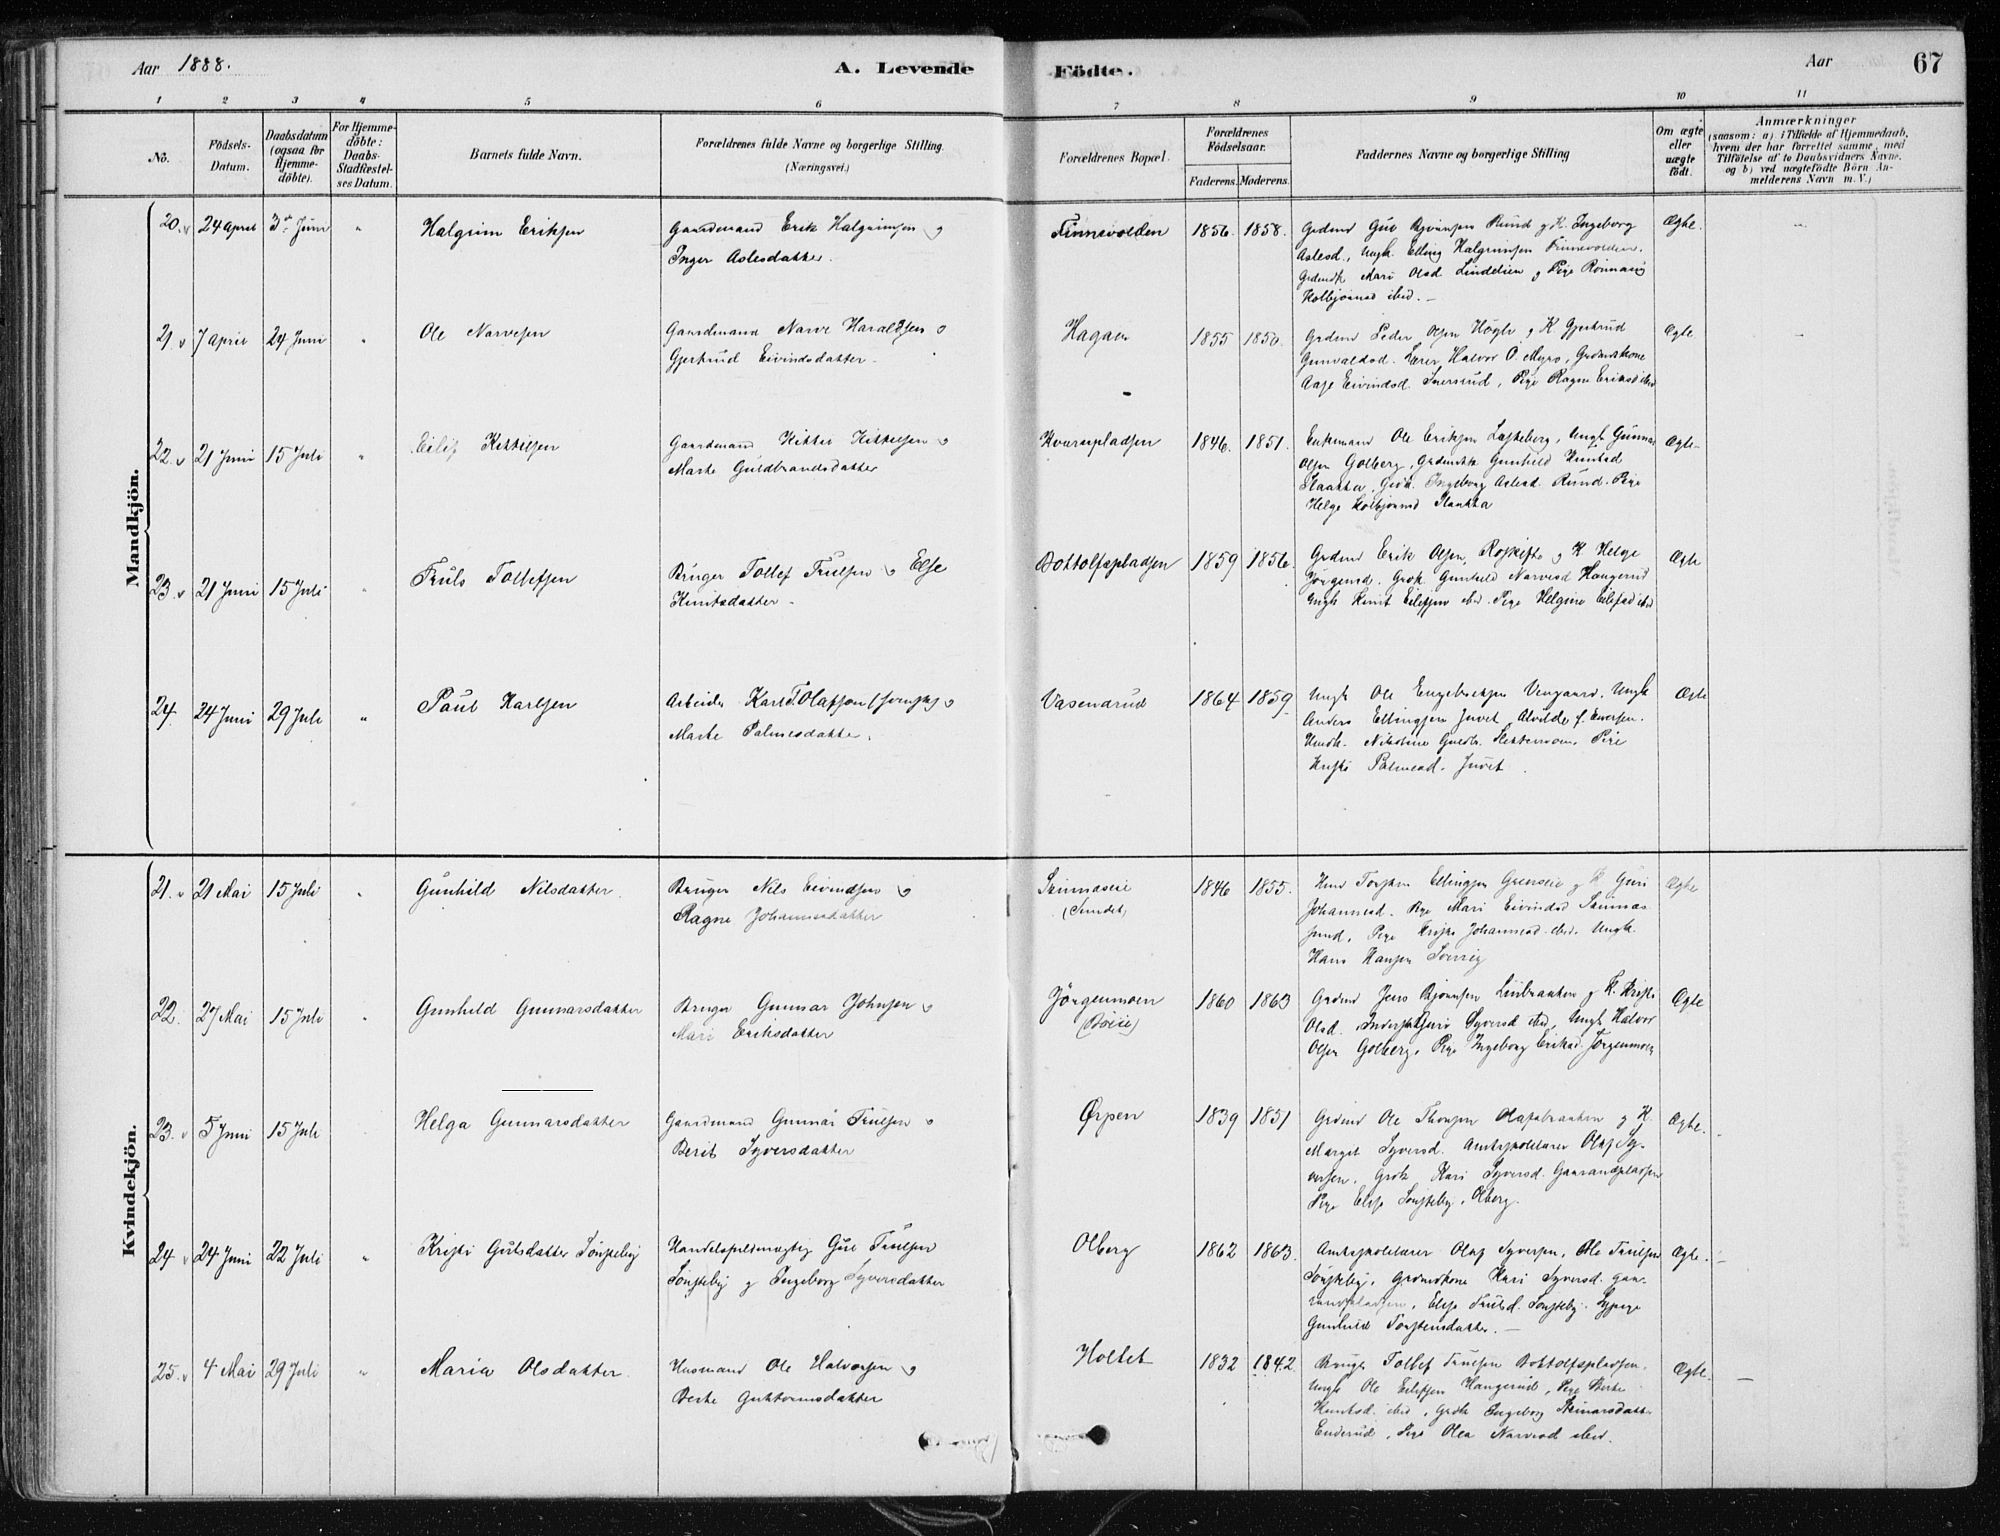 Aar 1888.
A. Levende
Födte.
Aar
67
1 2 3 4 5 6 7 8 9 10 11
No.
Födsels-
Datum.
Daabsdatum
(ogsaa for
Hjemme-
döbte).
For Hjemme-
döbte:
Daabs-
Stadfæstel-
ses Datum.
Barnets fulde Navn.
Forældrenes fulde Navne og borgerlige Stilling.
(Næringsvei.)
Forældrenes Bopæl.
Forældrenes
Födselsaar.
Faderens. Moderens.
Faddernes Navne og borgerlige Stilling
Om ægte
eller
uægte
födt.
Anmærkninger
(saasom: a) i Tilfælde af Hjemmedaab,
hvem der har forrettet samme, med
Tilföielse af to Daabsvidners Navne,
og b) ved uægtefödte Börn An-
melderens Navn m. V.)
Mandkjön.
20. 24 April 3die Juni " Halgrim Eriksen
Gaardmand Erik Halgrimsen og
Inger Aslesdatter.
Finnevolden 1856. 1858.
Grdmd Gul Rund og K. Ingeborg
Aslesd., Ungk. Elling Halgrimsen Finnevolden.
Grdmdk Mari Olsd Lindelien og Pige
Kolbjørnsd ibid. -
Ægte.
21. 7 April 24 Juni " Ole Narvesen
Gaardmand Narve Haraldsen og
Gjertrud Eivindsdatter.
Hagaen 1855 1850.
Grdmd Peder Olsen Høgle og K Gjertrud
Gunvaldsd. Lærer Halvor O. Myro, Grdmdskone
Aase Eivindsd. Snersrud, Pige Ragne Eriksd ibid
Ægte
22. 21 Juni 15 Juli " Eilif Kittilsen
Gaardmand Kittil Kittelsen og
Marte Guldbrandsdatter
Kvernpladsen 1846. 1851.
Enkemand Ole Eriksen Løsteberg, Ungk Gunnar
Olsen Golberg, Grdmdsk Gunhild Knutsd
Slaatta, Grdk. Ingeborg Aslesd. Rund. Pige
Helge Kolbjørnsd Slaatta
Ægte
23. 21 Juni 15 Juli " Truls Tollefsen
Bruger Tollef Trulsen og Else
Knutsdatter.
Bottolfspladsen 1859 1856.
Grdmd Erik Olsen, og K Helge
Jørgensd. Grdk. Gunhild Narvesd Haugerud
Ungk Knut Eilefsen ibid. Pige Helgine Eilefsd ibid
Ægte
24. 24 Juni 29 Juli " Paul Karlsen
Arbeider Karl T. Olafson (svensk) og
Marte Palmesdatter.
Vasendrud 1864 1859.
Ungk Ole Engebretsen Vengaard. Ungk
Anders Ellingsen Juvet, Alvilde f. Eversen.
Nikoline Guldb. Pige
Kristi Palmesd. Juvet.
Ægte
Kvindekjön.
21. 21 Mai 15 Juli " Gunhild Nilsdatter.
Bruger Nils Eivindsen og
Ragne Johannesdatter
(Sundet)
1846 1855.
Torsten Ellingsen og K Guri
Johannesd. Pige Mari Eivindsd
Pige Kristi Johannesd. ibid. Ungk.
Hans Hansen
Ægte
22. 27 Mai 15 Juli " Gunhild Gunnarsdatter
Bruger Gunnar Johnsen og
Mari Eriksdatter
Jørgenmoen
1860 1863
Grdmd Jens Bjørnsen Linbraaten og K. Kristi
Olsd. Guri Syversd ibid, Ungk Halvor
Olsen Golberg, Pige Ingeborg Eriksd. Jørgenmoen
Ægte
23. 5 Juni 15 Juli Helga Gunnarsdatter
Gaardmand Gunnar Trulsen og
Berit Syversdatter
Ørpen 1839 1851
Grdmd Ole Thorsen Olafsbraaten og K.
Marget Syversd. Amtsskolelærer Olaf Sy-
versen, Grdk Kari Syversd. Gaarandpladsen
Pige Elise Sønsteby, Olberg.
Ægte.
24 24 Juni 22 Juli " Kristi Gulsdatter Sønsteby
Handelsfuldmægtig Gul Trulsen
Sønsteby og Ingeborg Syversdatter
Olberg 1862 1863.
Amtsskolelærer Olaf Syversen, Ole Trulsen
Sønsteby, Grdmdkone Kari Syversd. Gaa-
randpladsen, Elise Trulsd. Sønsteby.
Gunhild Torstensdatter. -
Ægte.
25. 4 Mai 29 Juli " Maria Olsdatter
Husmand Ole Halvorsen og
Berte Guttormsdatter
Holtet 1832 1842
Bruger Tollef Trulsen Bottolfspladsen.
Ungk Ole Eilefsen Haugerud, Pige Berte
Knutsd. ibid, Grdk Ingeborg Steinarsdatter
Enderud, Pige Olea Narvesd ibid.
Ægte. -